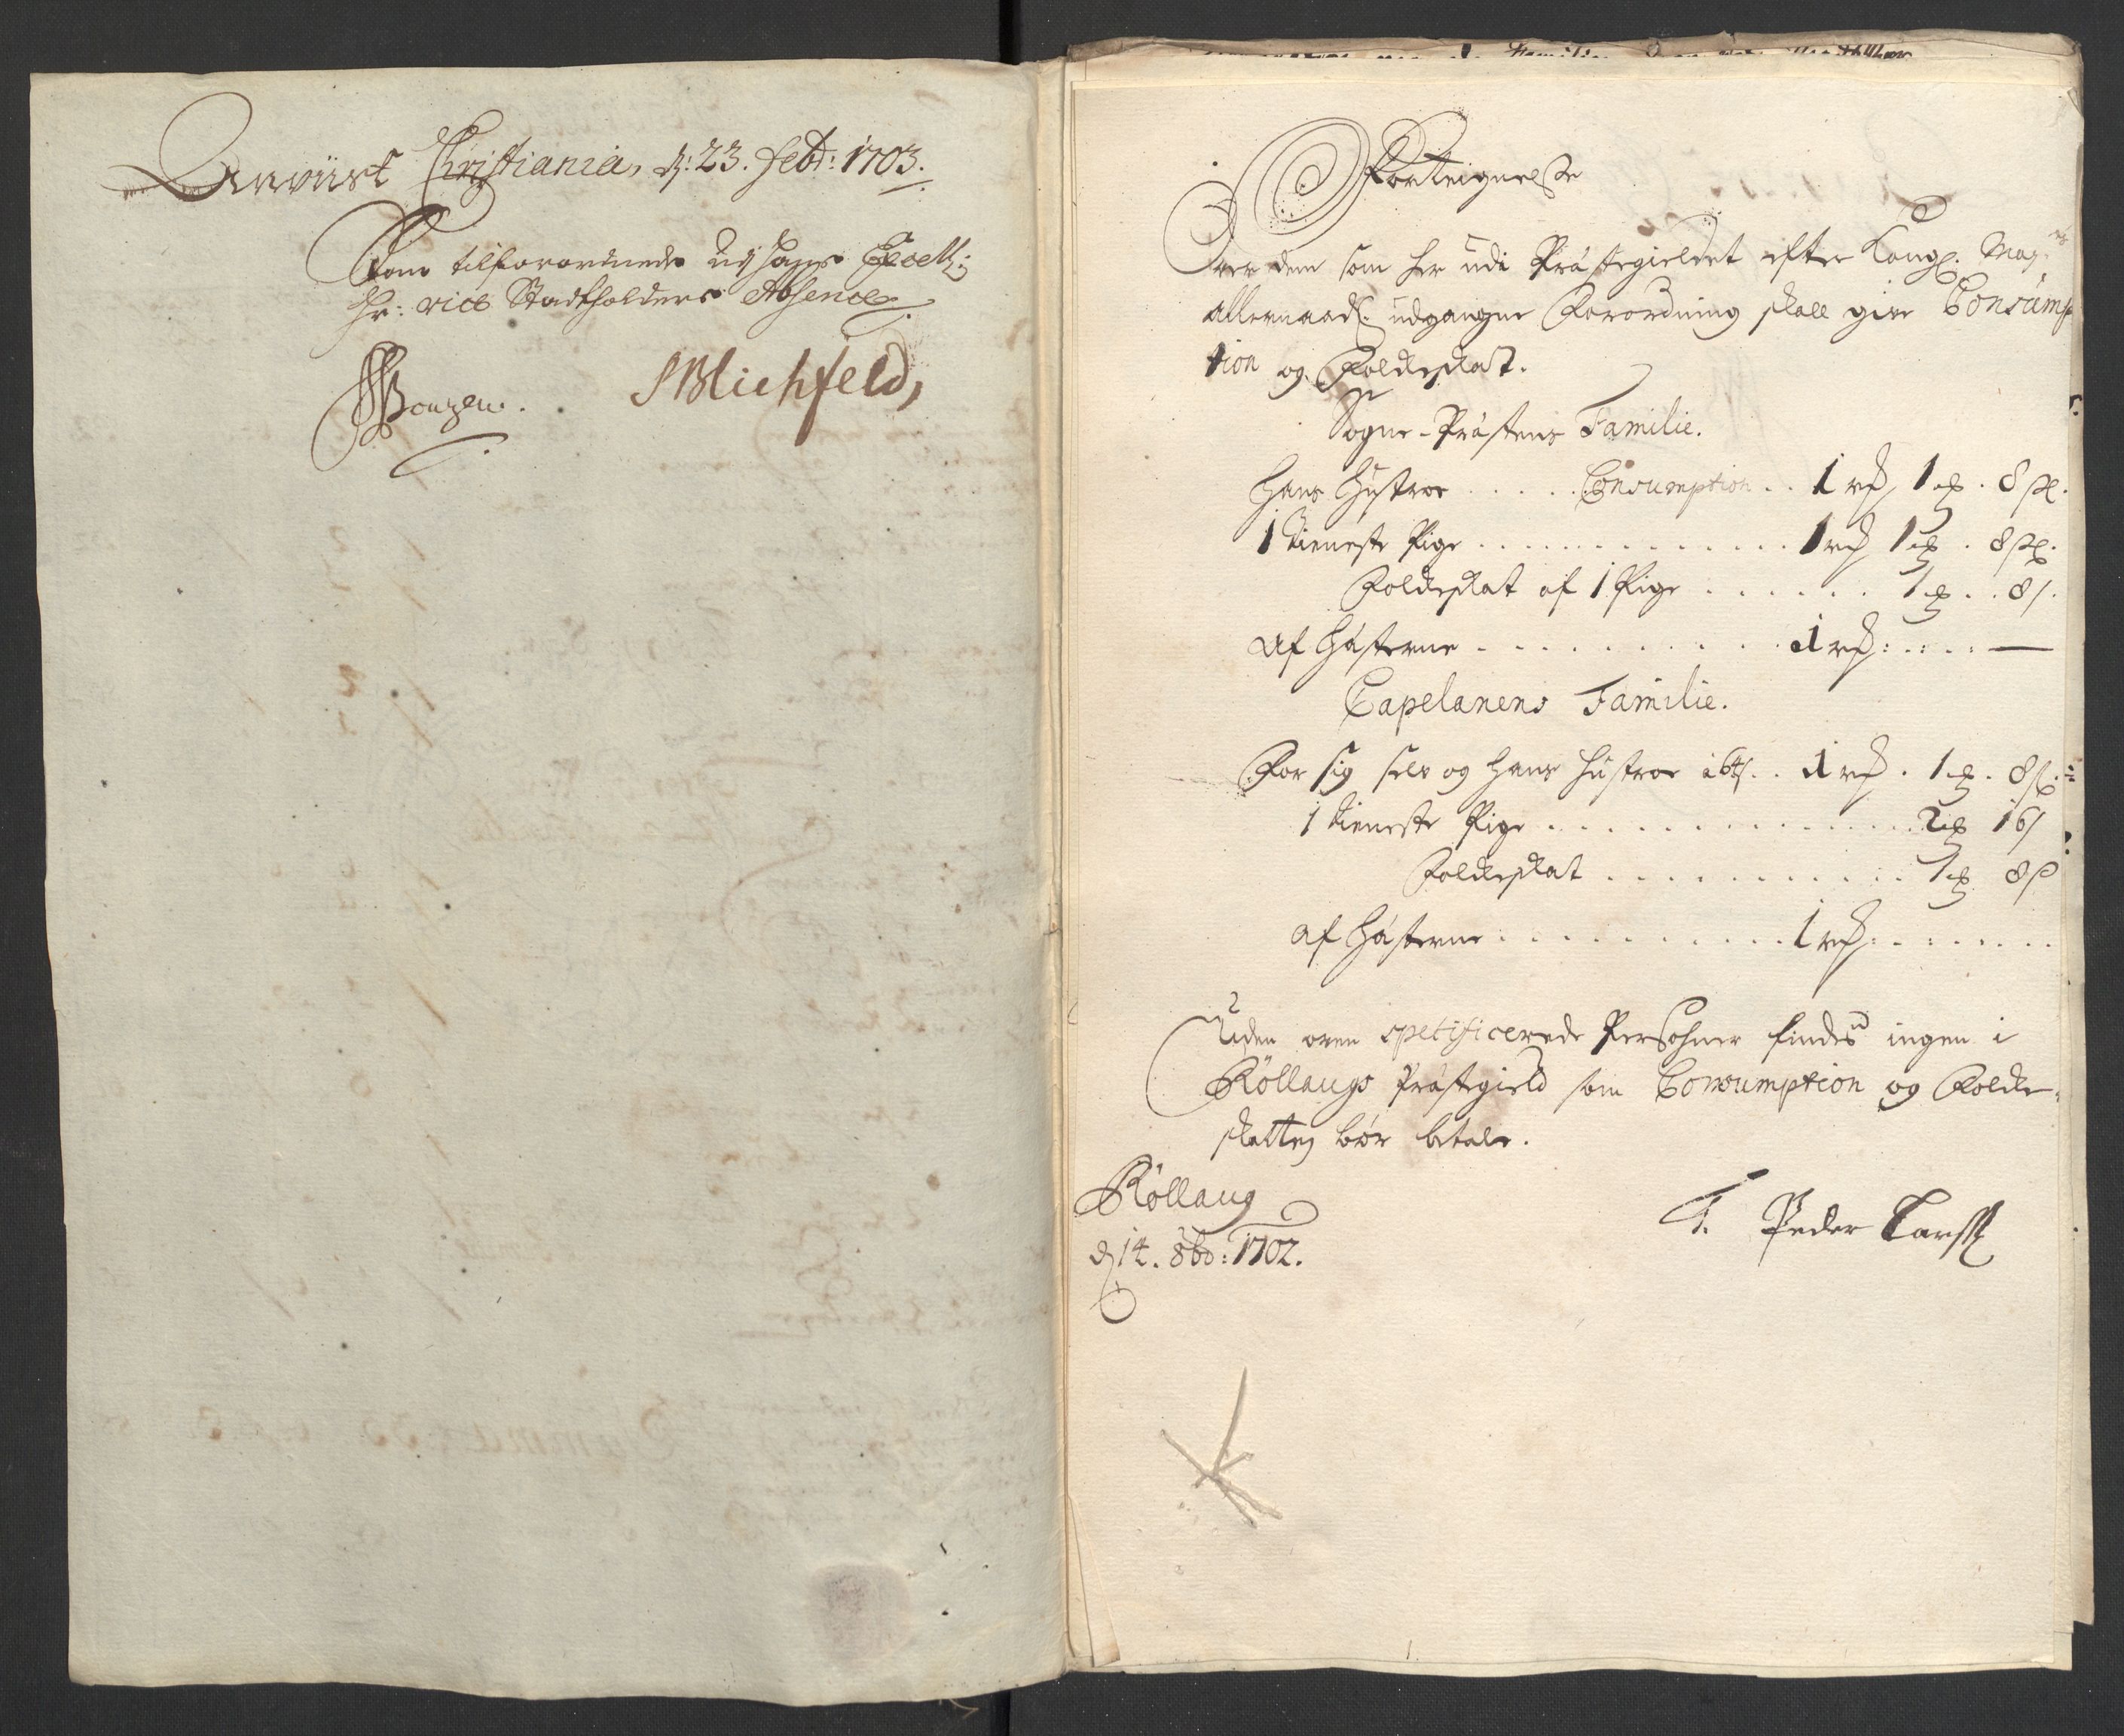 Anviist Christiania, d: 23. Febr: 1703.
Som tilforordnede udj hans Excell:
Hr: vice Stadtholders Absence.
Bonzen. SMichfeld,
Forteignelse
Over dem som her udi Præstegieldet efter Kongl. May.
allernaadl. udgangne Forordning skall give Consump
tion og Folkeskat.
Sogne-Præstens Familie.
Hans Hustroe ..... Consumption .. 1 rd 1 mk. 8 sk.
1 tieneste Pige ............... 1 rd 1 mk. 8 sk.
Folkeskat af 1 Pige ...... 1 mk .. 8 s.
Af Hæsterne ........... 1 rd: . . . . —
Capelanens Familie.
For sig selv og hans Hustroe 1 rd. 1 mk. 8 s.
1 tieneste Pige ................ 2 mk 16 s
Folkeskat ........... 1 mk 8 s
af Hæsterne ........... 1 rd: . . . . . .
Uden oven spetificerede Persohner findes ingen i
Röllaugs Præstegield som Consumption og Folke-
skatten bør betale.
Röllaug
d 14. 8br: 1702.
T. Peder Larss